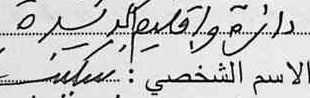 دائرة و اقليم الدريسية
الاسم الشخصي : سكينة